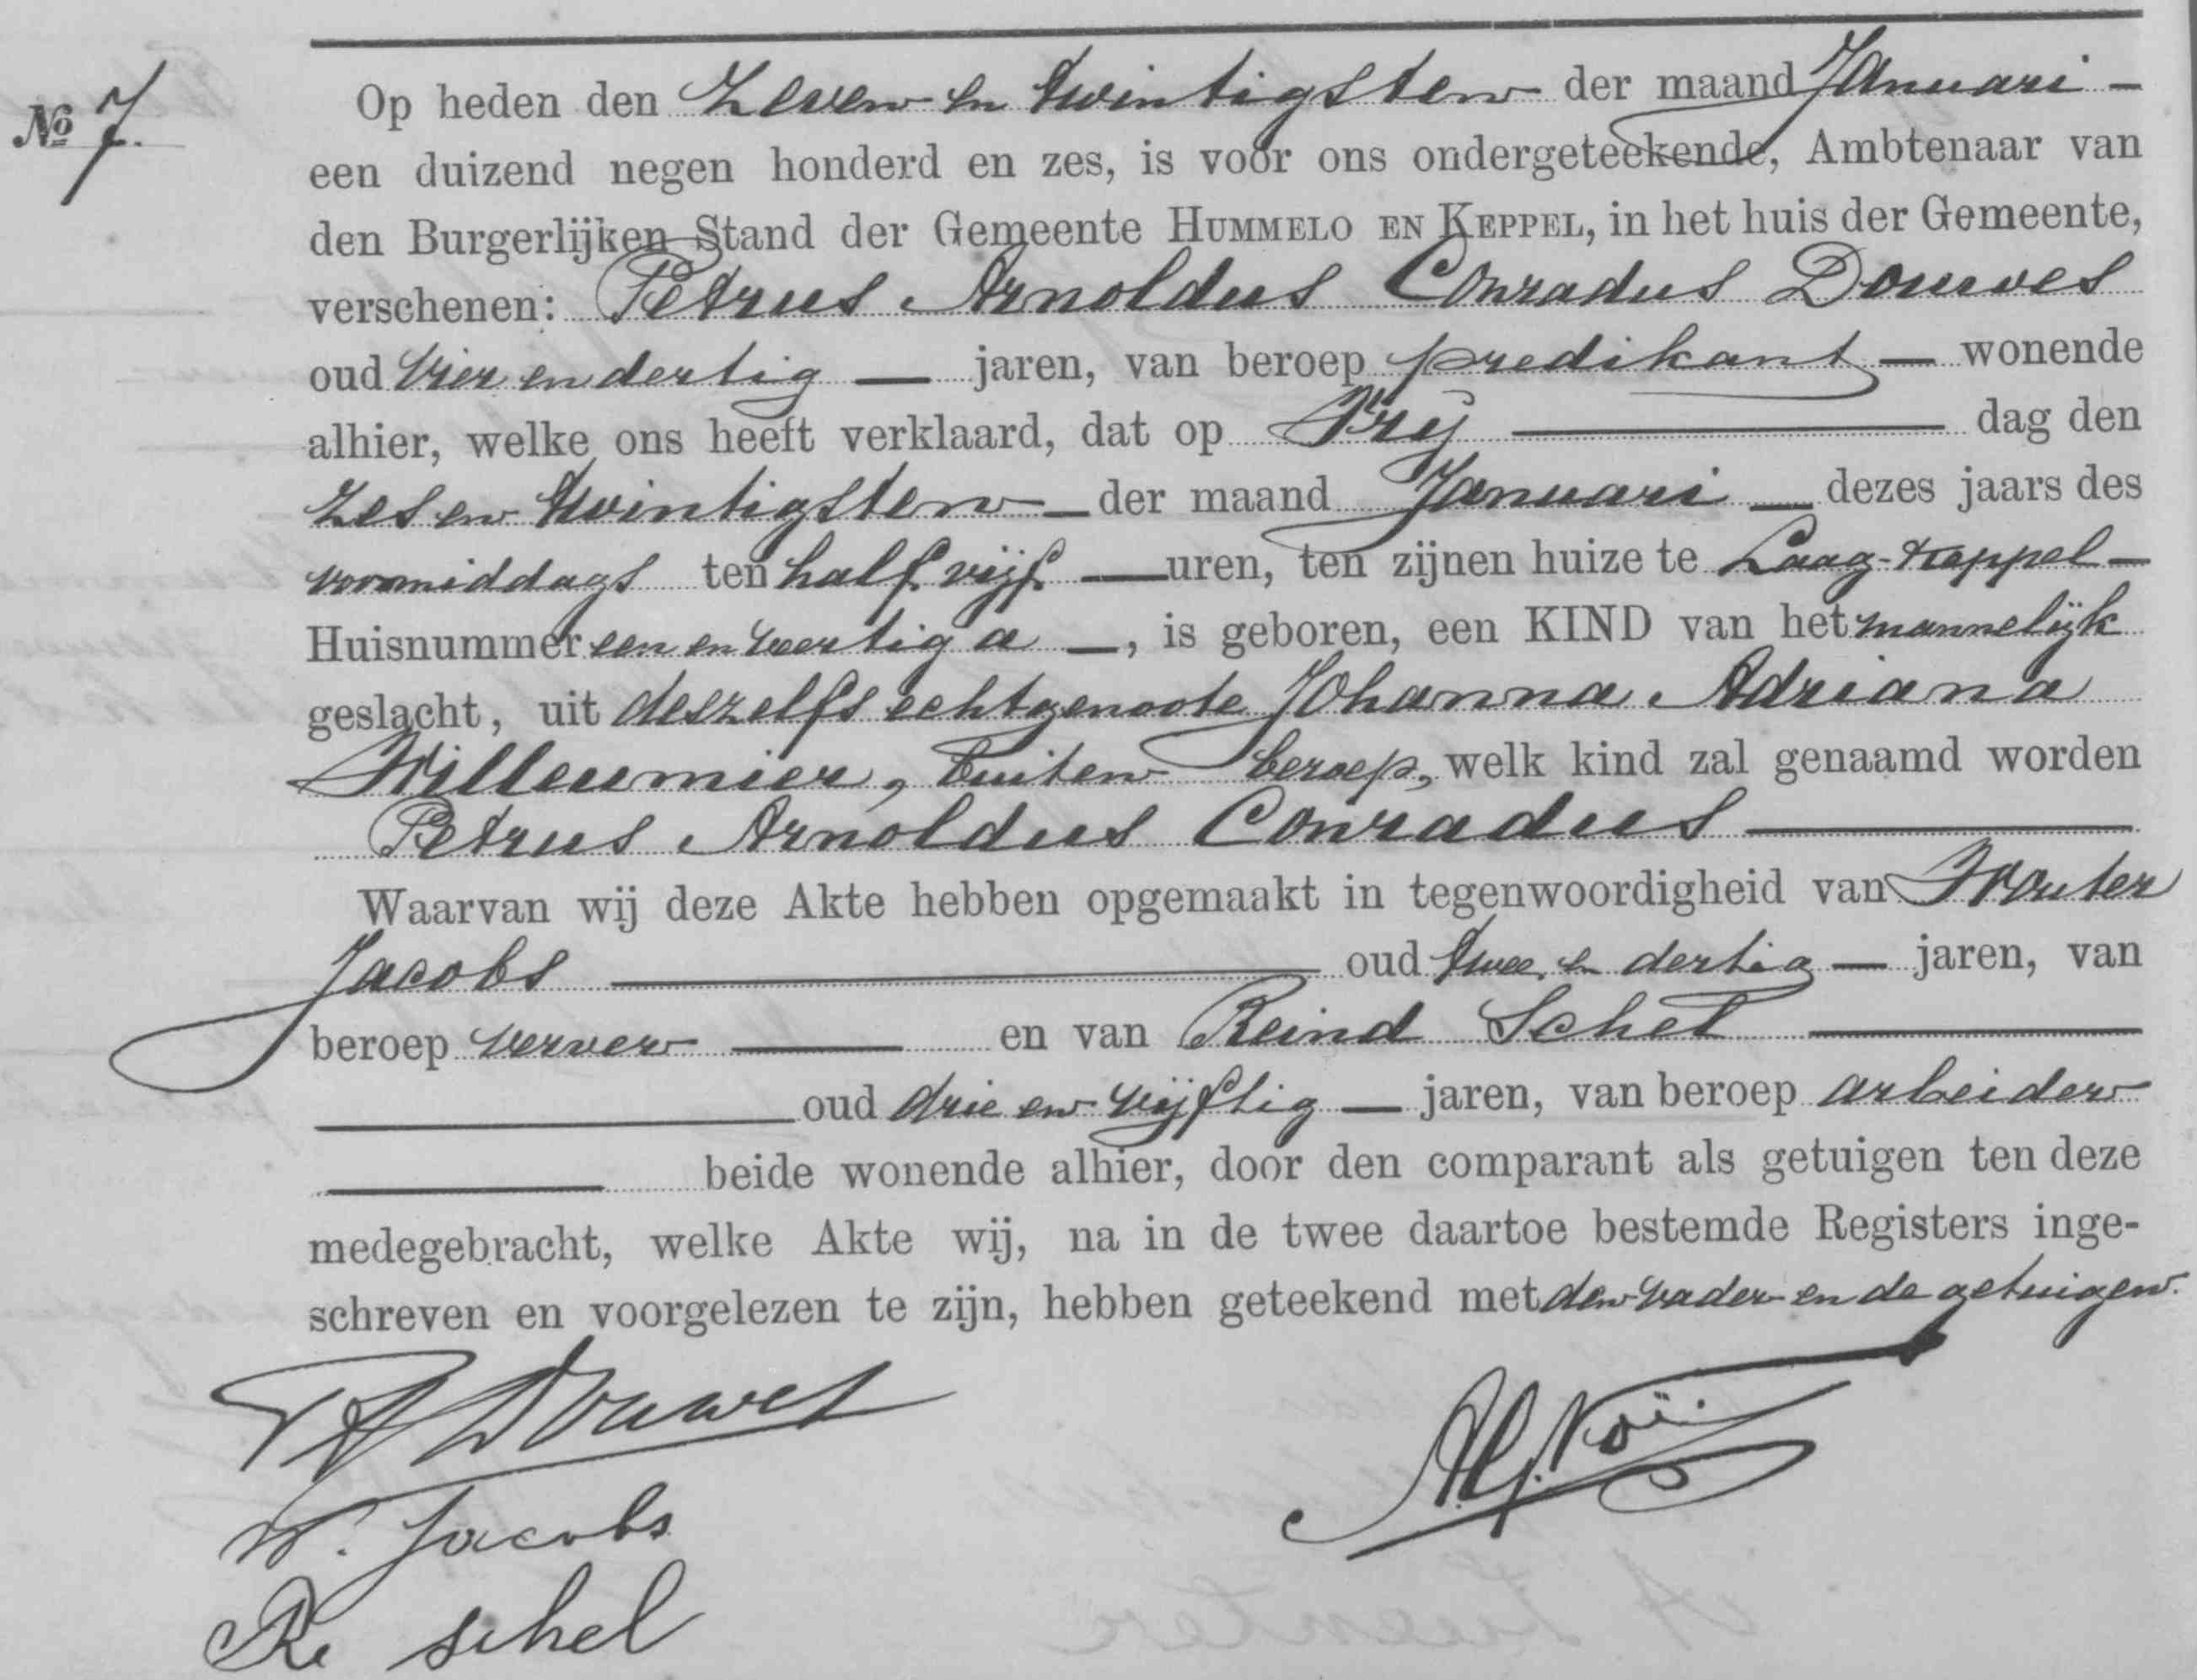 Nº 7.
Op heden den Zeven en twintigsten der maand Januari
een duizend negen honderd en zes, is voor ons ondergeteekende, Ambtenaar van
den Burgerlijken Stand der Gemeente HUMMELO EN KEPPEL, in het huis der Gemeente,
verschenen: Petrus Arnoldus Conradus Douwes
oud vier en dertig — jaren, van beroep predikant — wonende
alhier, welke ons heeft verklaard, dat op Vrij — dag den
zes en twintigsten — der maand Januari — dezes jaars des
voormiddags ten half vijf — uren, ten zijnen huize te Laag-Keppel —
Huisnummer een en veertig a —, is geboren, een KIND van het mannelijk
geslacht, uit deszelfs echtgenoote Johanna Adriana
Willeumier, buiten beroep, welk kind zal genaamd worden
Petrus Arnoldus Conradus —
Waarvan wij deze Akte hebben opgemaakt in tegenwoordigheid van Wouter
Jacobs — oud twee en dertig — jaren, van
beroep verver — en van Reind Schel —
— oud drie en vijftig — jaren, van beroep arbeider
— beide wonende alhier, door den comparant als getuigen ten deze
medegebracht, welke Akte wij, na in de twee daartoe bestemde Registers inge-
schreven en voorgelezen te zijn, hebben geteekend met den vader en de getuigen.
PA Douwes
W. Jacobs
Re schel